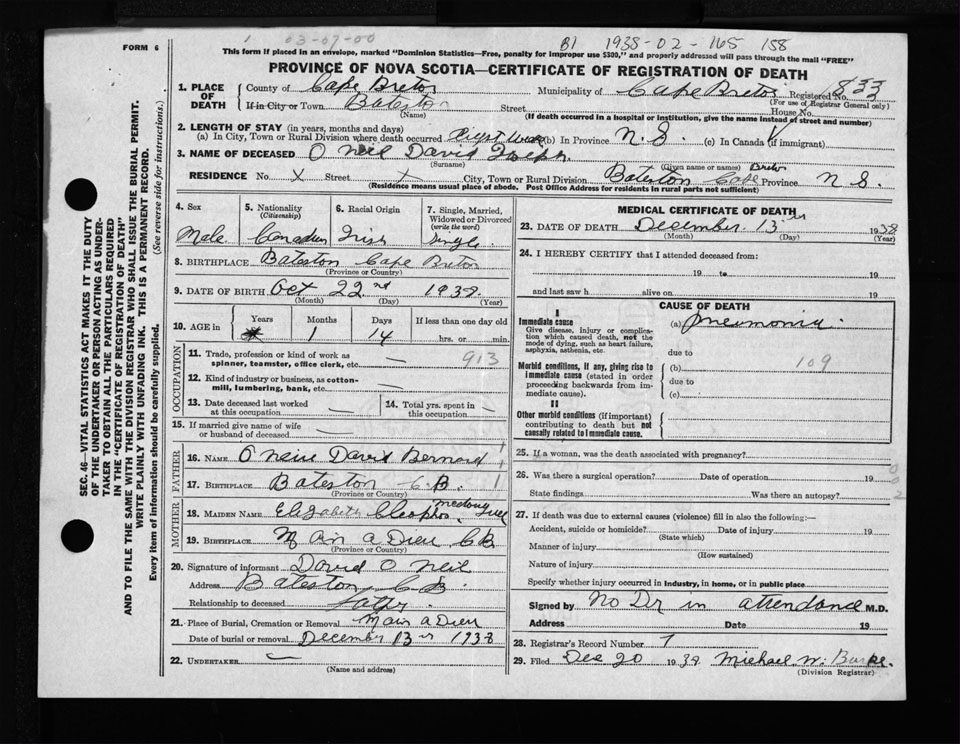 1 03-07-00 B1 1938-02-165 158
FORM 6
This form if placed in an envelope, marked "Dominion Statistics—Free, penalty for improper use $300," and properly addressed will pass through the mail "FREE"
PROVINCE OF NOVA SCOTIA—CERTIFICATE OF REGISTRATION OF DEATH
SEC. 46—VITAL STATISTICS ACT MAKES IT THE DUTY
OF THE UNDERTAKER OR PERSON ACTING AS UNDER-
TAKER TO OBTAIN ALL THE PARTICULARS REQUIRED
IN THE "CERTIFICATE OF REGISTRATION OF DEATH"
AND TO FILE THE SAME WITH THE DIVISION REGISTRAR WHO SHALL ISSUE THE BURIAL PERMIT.
WRITE PLAINLY WITH UNFADING INK. THIS IS A PERMANENT RECORD.
Every item of information should be carefully supplied. (See reverse side for instructions.)
1. PLACE OF DEATH County of Cape Breton Municipality of Cape Breton Registered No. 833
(For use of Registrar General only)
If in City or Town Bateston Street House No.
(Name) (If death occurred in a hospital or institution, give the name instead of street and number)
2. LENGTH OF STAY (in years, months and days)
(a) In City, Town or Rural Division where death occurred (b) in Province N.S. (c) In Canada (if immigrant)
3. NAME OF DECEASED O Neil David Joseph
(Surname) (Given name or names)
RESIDENCE No. X Street X City, Town or Rural Division Bateston Cape Breton Province N S.
(Residence means usual place of abode. Post Office Address for residents in rural parts not sufficient)
4. Sex 5. Nationality (Citizenship) 6. Racial Origin 7. Single, Married, Widowed or Divorced (write the word)
Male Canadian Irish Single
8. BIRTHPLACE Bateston Cape Breton
(Province or Country)
9. DATE OF BIRTH Oct 22nd 1938
(Month) (Day) (Year)
10. AGE in Years Months Days If less than one day old
1 14 hrs. or min.
OCCUPATION
11. Trade, profession or kind of work as spinner, teamster, office clerk, etc. — 913
12. Kind of industry or business, as cotton-mill, lumbering, bank, etc. —
13. Date deceased last worked at this occupation — 14. Total yrs. spent in this occupation —
15. If married give name of wife or husband of deceased —
FATHER
16. NAME O Neill David Bernard
17. BIRTHPLACE Bateston C.B.
(Province or Country)
MOTHER
18. MAIDEN NAME Elizabeth
19. BIRTHPLACE Main a Dieu C B
(Province or Country)
20. Signature of informant David O Neil
Address Bateston C B.
Relationship to deceased Father.
21. Place of Burial, Cremation or Removal Main a Dieu
Date of burial or removal December 13 1938
22. UNDERTAKER —
(Name and address)
MEDICAL CERTIFICATE OF DEATH
23. DATE OF DEATH December 13 1938
(Month) (Day) (Year)
24. I HEREBY CERTIFY that I attended deceased from:
19 to 19
and last saw h alive on 19
CAUSE OF DEATH
I
Immediate cause (a) Pneimonia.
Give disease, injury or complication which caused death, not the mode of dying, such as heart failure, asphyxia, asthenia, etc.
due to
Morbid conditions, if any, giving rise to immediate cause (stated in order proceeding backwards from immediate cause).
(b) 109
due to
(c)
II
Other morbid conditions (if important) contributing to death but not causally related to immediate cause.
25. If a woman, was the death associated with pregnancy?
26. Was there a surgical operation? Date of operation 19
State findings Was there an autopsy?
27. If death was due to external causes (violence) fill in also the following:—
Accident, suicide or homicide? Date of injury 19
(State which)
Manner of injury
(How sustained)
Nature of injury
Specify whether injury occurred in industry, in home, or in public place
Signed by No Dr in attendance M.D.
Address Date 19
28. Registrar's Record Number 7
29. Filed Dec 20 1938 Michael W. Burke.
(Division Registrar)